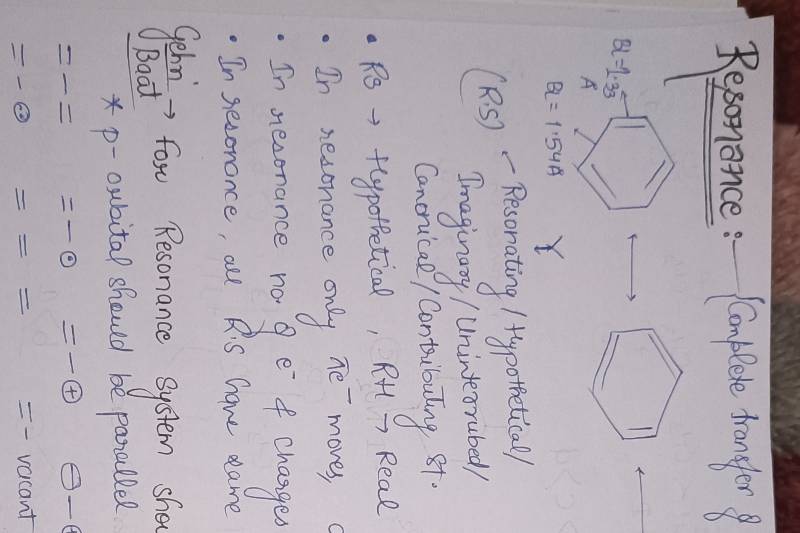 Resonance :- (Complete transfer of
BL=1.33
Å
BL = 1.54Å
(R.S) Resonating / Hypothetical /
Imaginary / Uninterrubed /
Canonical / Contributing St.
• RS → Hypothetical, RH → Real
• In resonance only πe⁻ moves,
• In resonance no. of e⁻ & charges
• In resonance, all R.S have same
Gehri → for Resonance system shou
Baat
* p-orbital should be parallel
= - = = - ⊙ = - ⊕ ⊖ - ⊕
= - = = = = - vacant